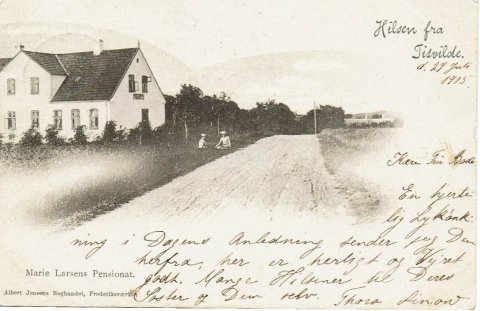 Hilsen fra
Tisvilde.
d. 27 Juli
1903.
Kære Frk Bodil
En hjerte
lig Lykønsk
ning i Dagens Anledning sender jeg Dem
herfra, her er herligt og Vejret
godt. Mange Hilsner til Deres
Søster og Dem selv. Thora
Marie Larsens Pensionat.
Albert Jensens Boghandel, Frederiksværk